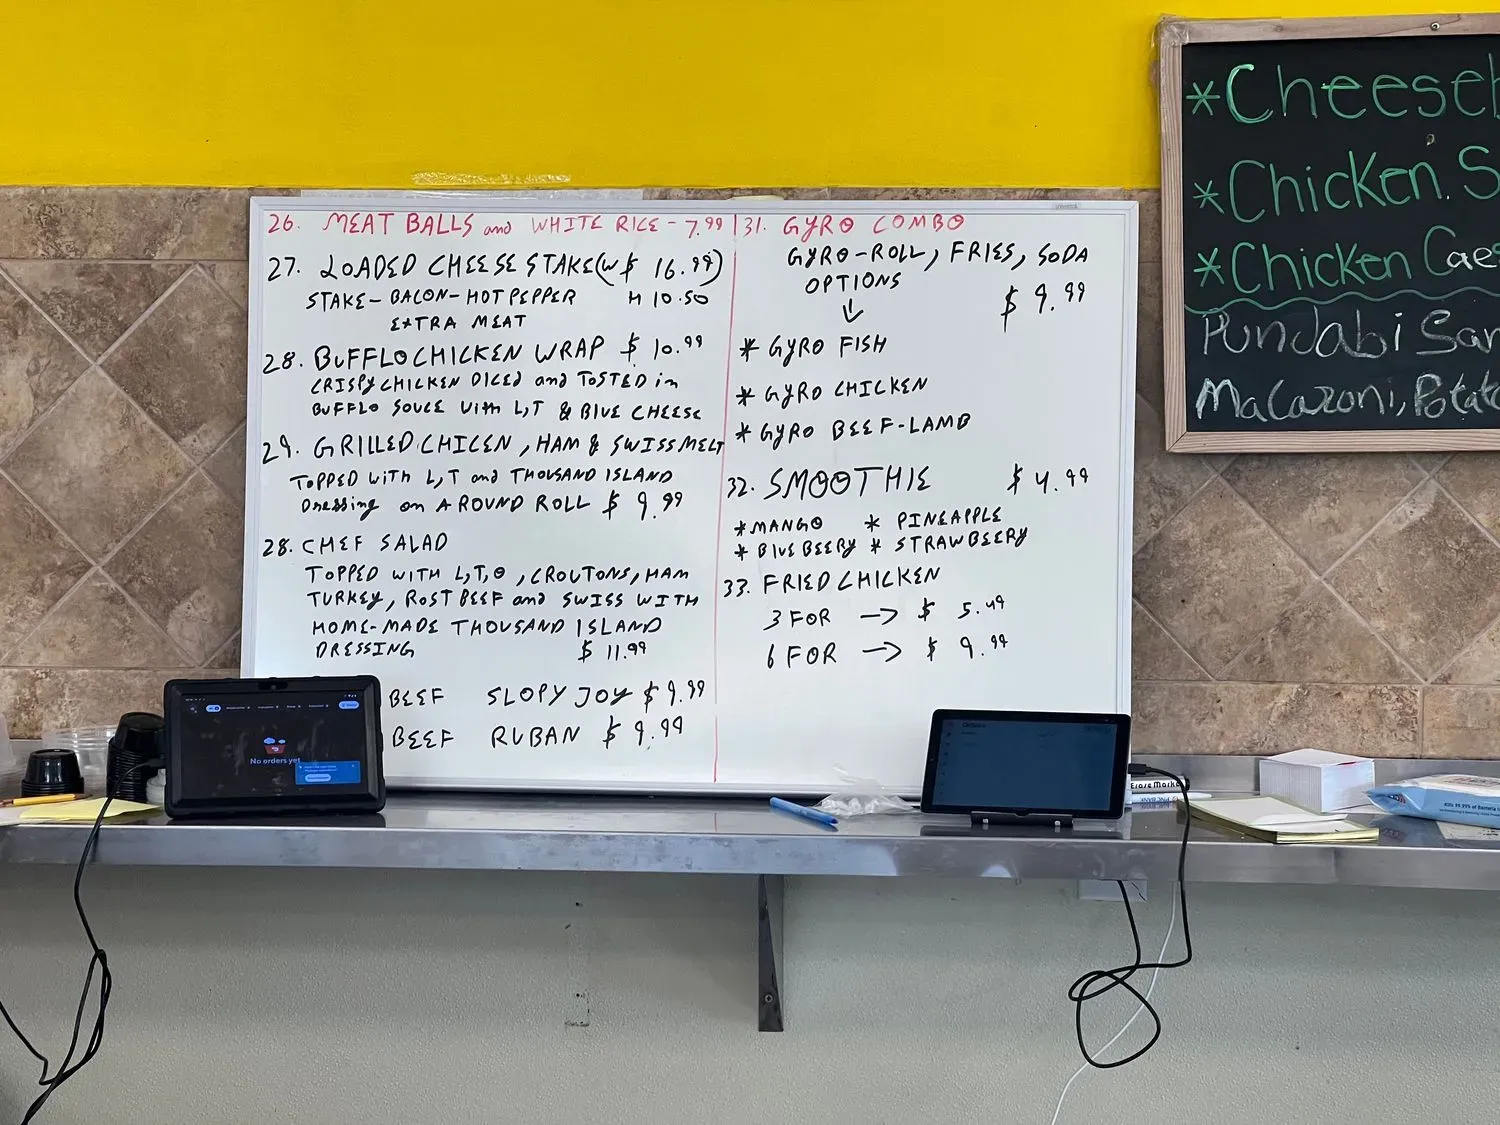 26. MEAT BALLS and WHITE RICE - 7.99
27. LOADED CHEESE STAKE (W $ 16.99)
STAKE - BACON - HOT PEPPER H 10.50
EXTRA MEAT
28. BUFFLO CHICKEN WRAP $ 10.99
CRISPY CHICKEN DICED and TOSTED in
BUFFLO SOUCE with L,T & BLUE CHEESE
29. GRILLED CHICEN, HAM & SWISS MELT
TOPPED WITH L,T and THOUSAND ISLAND
Dressing on A ROUND ROLL $ 9.99
28. CHEF SALAD
TOPPED WITH L,T,O, CROUTONS, HAM
TURKEY, ROST BEEF and SWISS WITH
HOME-MADE THOUSAND ISLAND
DRESSING $ 11.99
BEEF SLOPY JOY $ 9.99
BEEF RUBAN $ 9.99
31. GYRO COMBO
GYRO-ROLL, FRIES, SODA
OPTIONS
$ 9.99
* GYRO FISH
* GYRO CHICKEN
* GYRO BEEF-LAMB
32. SMOOTHIE $ 4.99
* MANGO * PINEAPPLE
* BLUE BEERY * STRAWBEERY
33. FRIED CHICKEN
3 FOR → $ 5.49
6 FOR → $ 9.99
* Cheeseb
* Chicken S
* Chicken Caes
Pundabi San
Macazoni, Potato
No orders yet
Erase Marke